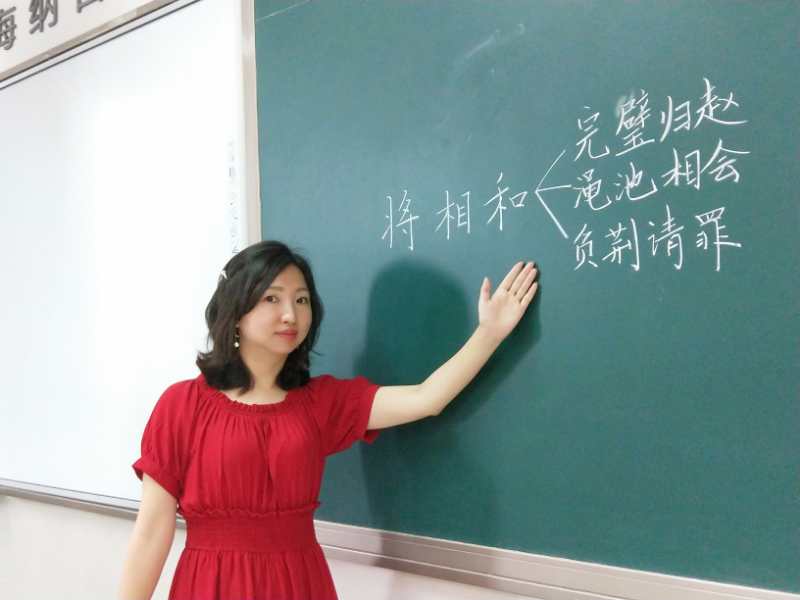 海纳百
将相和
完璧归赵
渑池相会
负荆请罪